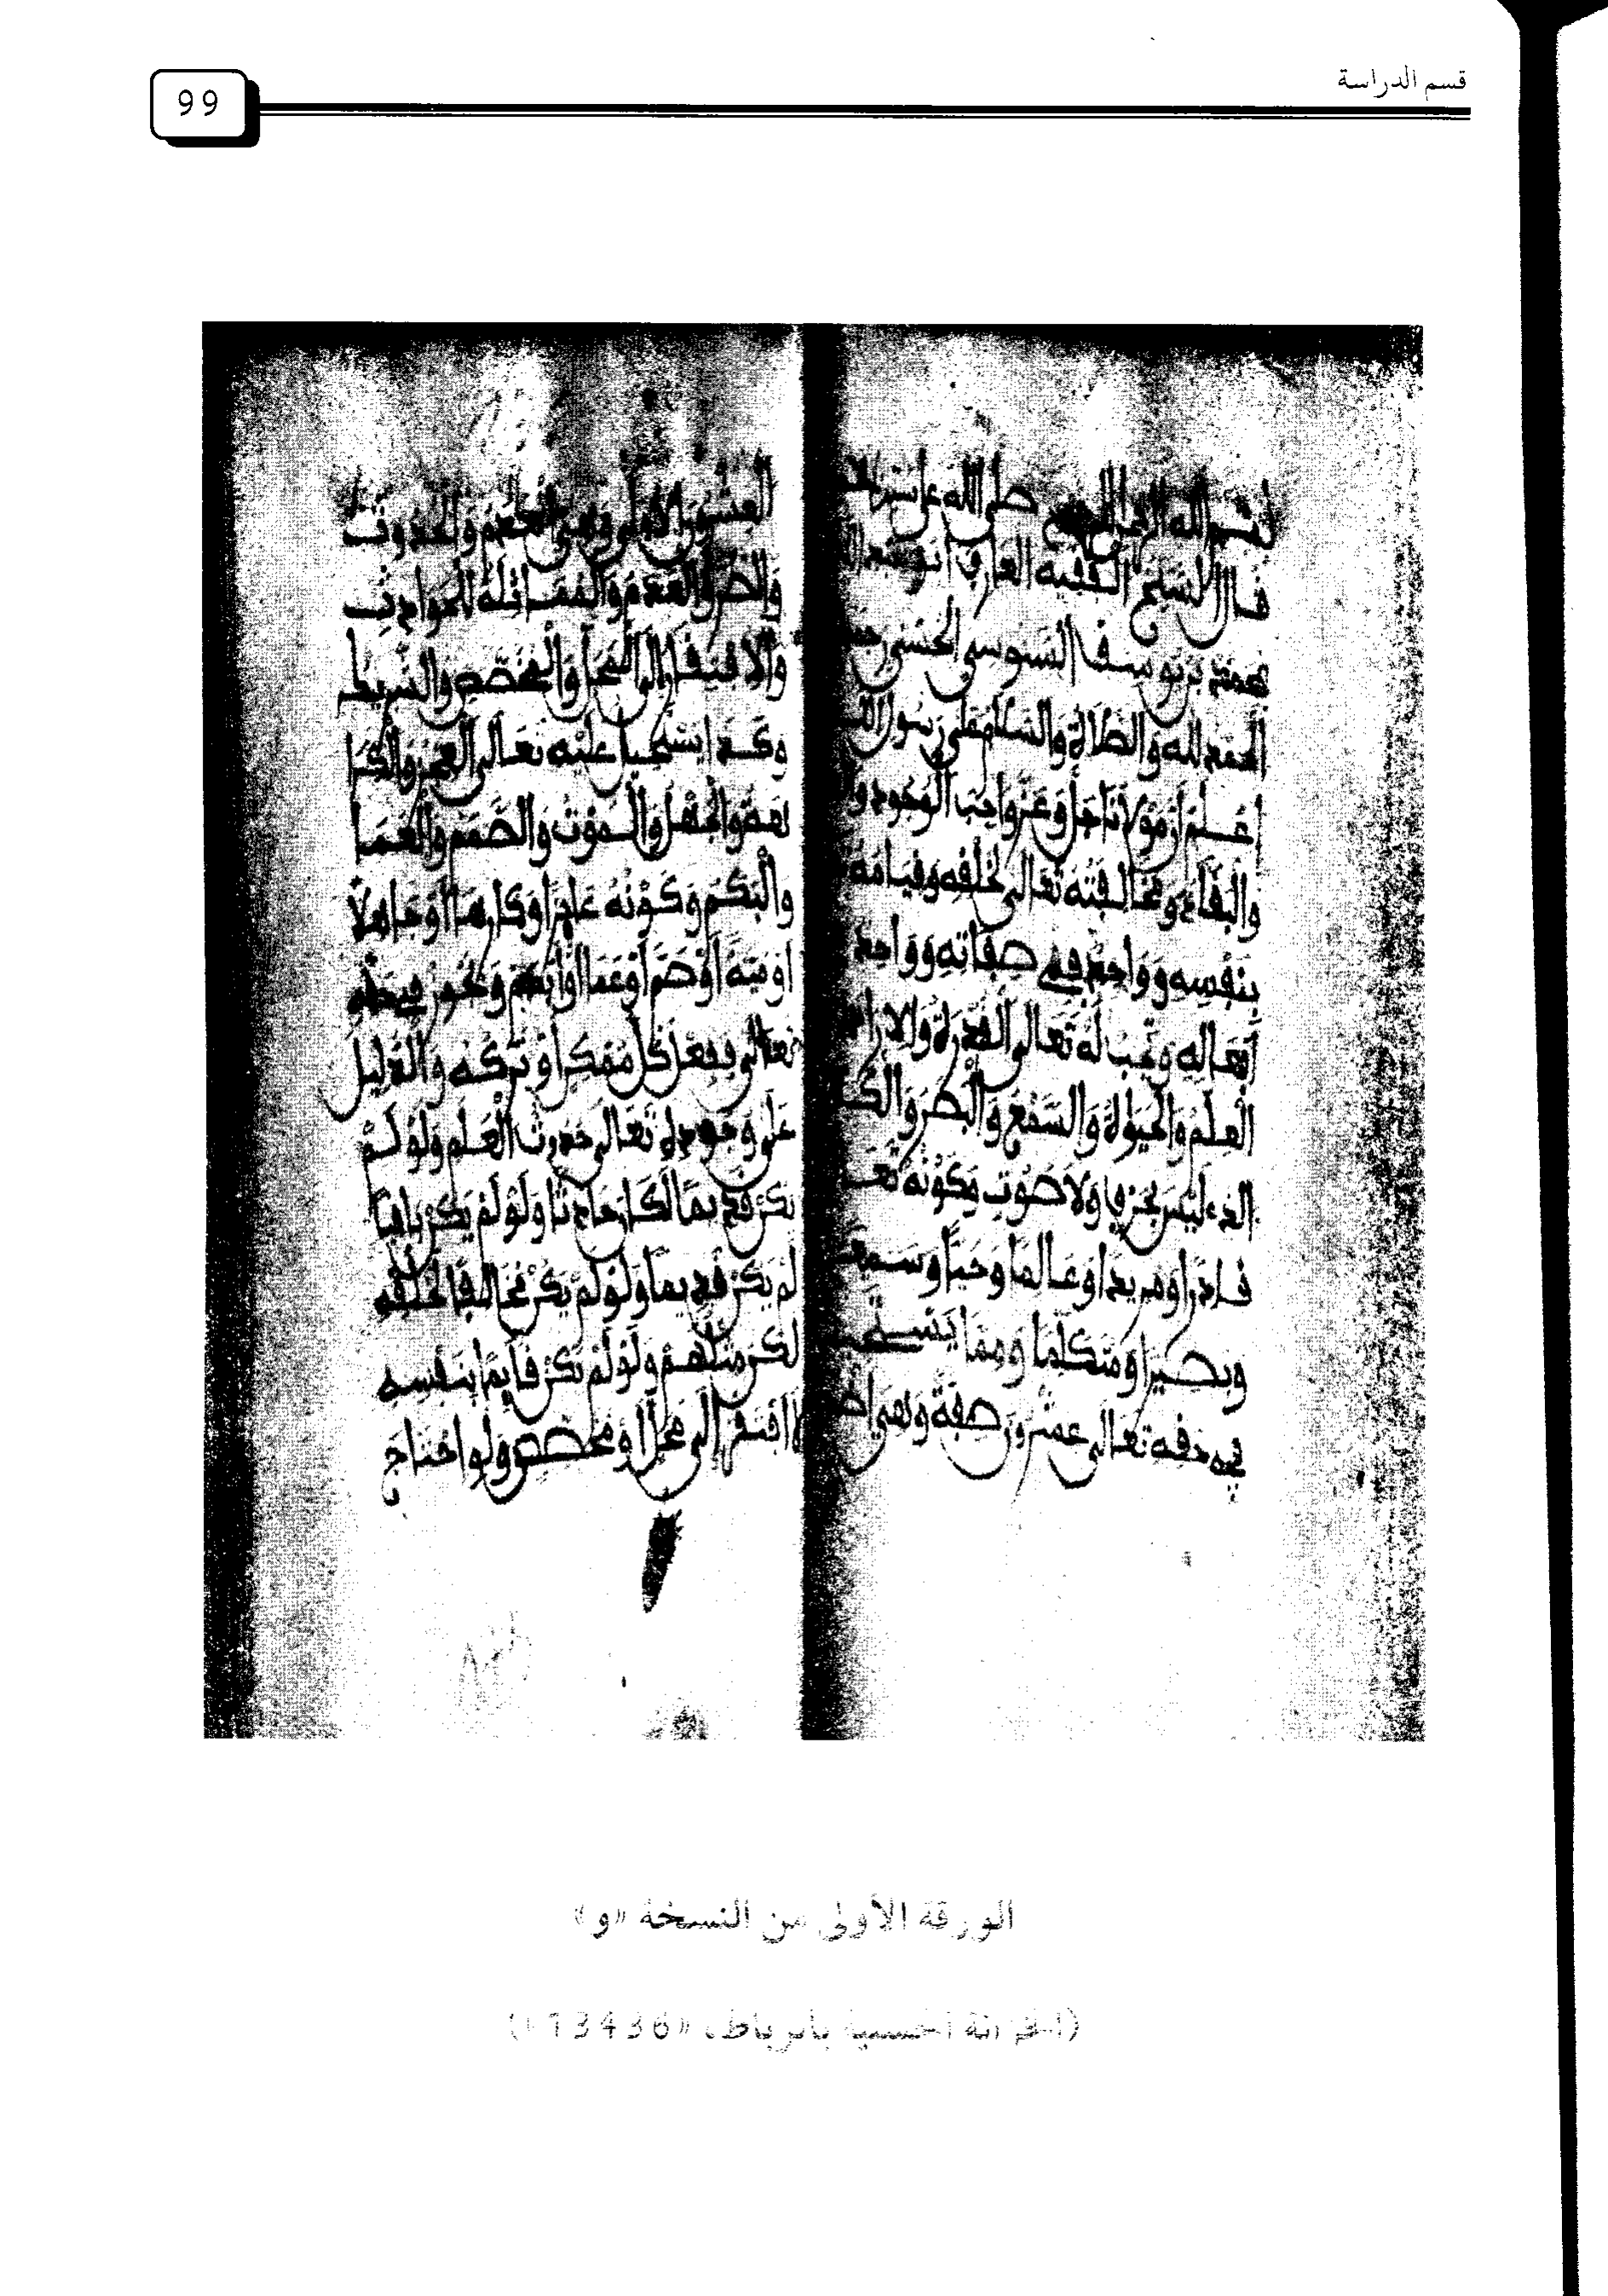 قسم الدراسة
99
بسم الله الرحمن الرحيم صلى الله على سيدنا
قال الشيخ الفقيه العارف أبو عبد الله
محمد بن يوسف السنوسي الحسني
الحمد لله والصلاة والسلام على رسول الله
اعلم أن مولانا جل وعز واجب الوجود وا
والبقاء ومخالفته تعالى لخلقه وقيامه
بنفسه وواحد في صفاته وواحد
أفعاله وتجب له تعالى القدرة والإرادة
العلم والحيوة والسمع والبصر والكـ
الذي ليس بحرف ولا صوت وكونه تعـ
قادرا ومريدا وعالما وحيا وسميعـ
وبصيرا ومتكلما ومما يستحيـ
في حقه تعالى عشرون صفة وهي أضـ
العشرين الأولى وهي العدم والحدوث
والطرو العدم والمماثلة للحوادث
والافتقار إلى المحل والمخصص والشريك
وكذا يستحيل عليه تعالى العجز والكرا
هة والجهل والموت والصمم والعما
والبكم وكونه عاجزا وكارها أو جاهلا
أو ميتا أو أصم أو أعما أو أبكم ويجوز في حقه
تعالى فعل كل ممكن أو تركه والدليل
على وجوده تعالى حدوث العلم ولو لم
يكن قديما لكان حادثا ولو لم يكن باقيا
لم يكن قديما ولو لم يكن مخالفا لخلقه
لكن مثلهم ولو لم يكن قايما بنفسه
لافتقر إلى محل أو مخصص ولو احتاج
الورقة الأولى من النسخة «و»
(الخزانة الحسنية بالرباط، «13436»)